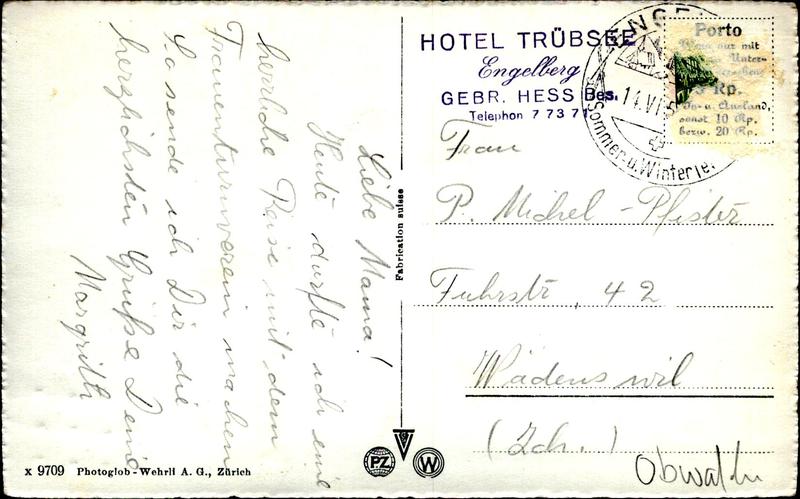 Liebe Mama!
Heute durfte ich eine
herrliche Reise mit dem
Frauenturnverein machen
Sa sende ich Dir die
herzlichsten Grüße Deine
Margrith
Fabrication suisse
x 9709 Photoglob-Wehrli A. G., Zürich
PZ
W
HOTEL TRÜBSEE
Engelberg
GEBR. HESS Bes.
Telephon 7 73 71
14.VI.5
Sommer- u. Winter
Porto
Wenn nur mit
Unter-
5 Rp.
In- u. Ausland,
sonst 10 Rp.
bezw. 20 Rp.
Frau
P. Michel-Pfister
Fuhrstr, 42
Wädenswil
(Zch.)
Obwalden